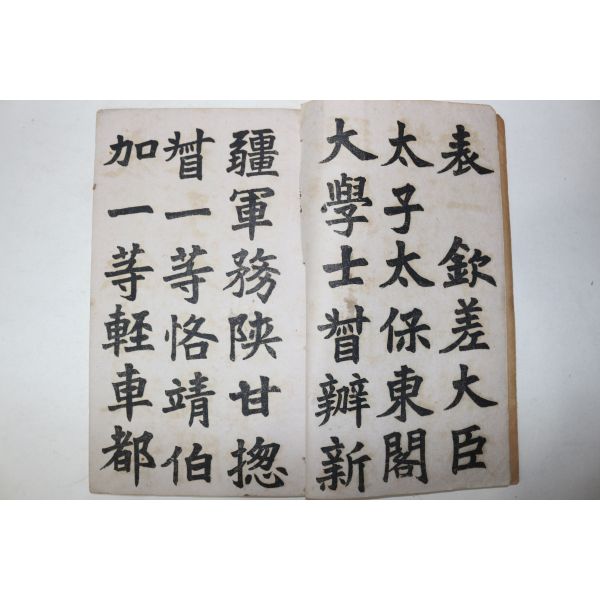 表 欽差大臣
太子太保東閣
大學士督辦新
疆軍務陝甘揔
督一等恪靖伯
加一等軽車都